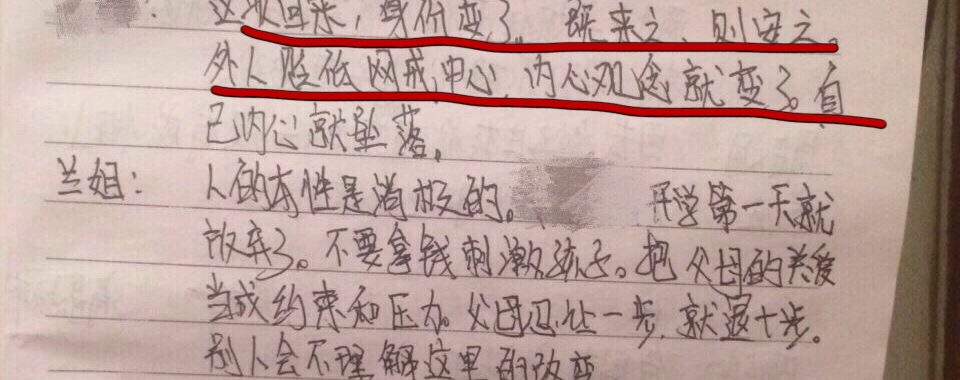 这次回来，身份变了。既来之、则安之。
外人贬低网戒中心，内心观念就变了。自
己内心就坠落。
兰姐： 人的本性是消极的。 开学第一天就
放弃了。不要拿钱刺激孩子。把父母的关爱
当成约束和压力。父母忍让一步，就退十步。
别人会不理解这里的改变